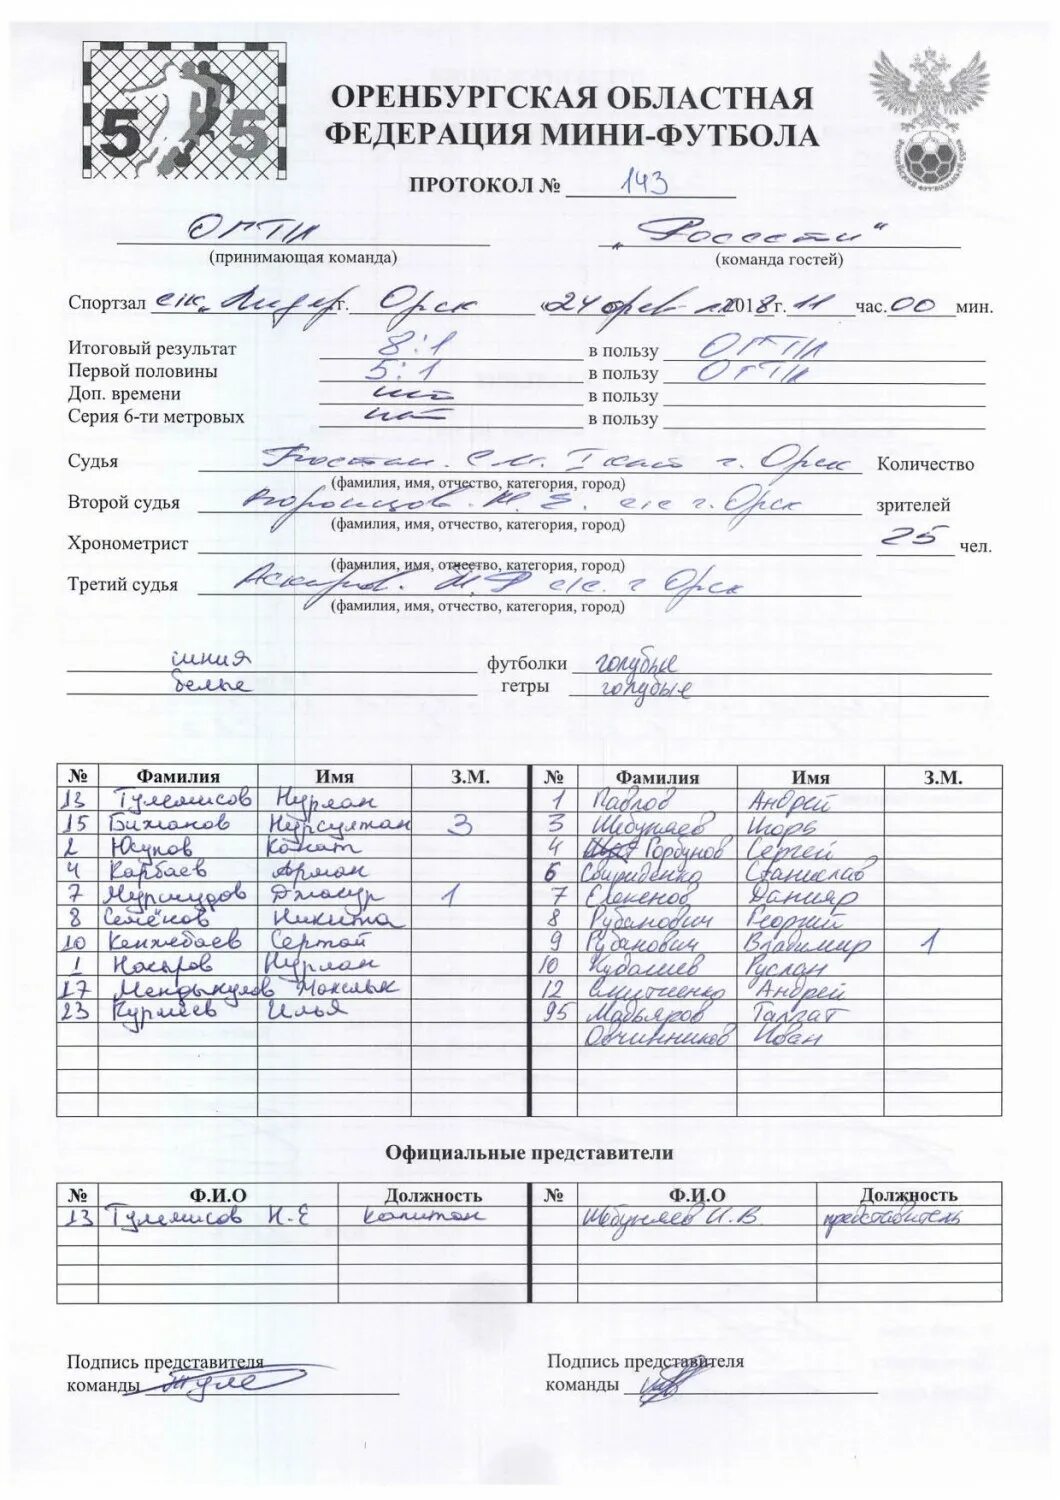 5 5
ОРЕНБУРГСКАЯ ОБЛАСТНАЯ
ФЕДЕРАЦИЯ МИНИ-ФУТБОЛА
ПРОТОКОЛ № 143
ОГТИ „Россети“
(принимающая команда) (команда гостей)
Спортзал с/к „Лидер г. Орск «24 фев 2018 г. 11 час. 00 мин.
Итоговый результат 8:1 в пользу ОГТИ
Первой половины 5:1 в пользу ОГТИ
Доп. времени нет в пользу
Серия 6-ти метровых нет в пользу
Судья С.М. I кат г. Орск Количество
(фамилия, имя, отчество, категория, город)
Второй судья Воронцов. с/с г. Орск зрителей
(фамилия, имя, отчество, категория, город)
Хронометрист 25 чел.
(фамилия, имя, отчество, категория, город)
Третий судья Аскаров. с/с. г Орск
(фамилия, имя, отчество, категория, город)
синия футболки голубые
белые гетры голубые
№ Фамилия Имя З.М. № Фамилия Имя З.М.
13 Тулемисов Нурлан 1 Павлов Андрей
15 Бижанов Нурсултан 3 3 Шебуняев Игорь
2 Юсупов Канат 4 Горбунов Сергей
4 Карбаев Арман 6 Свириденко Станислав
7 Мурсиудов Джасур 1 7 Елеменов Данияр
8 Семёнов Никита 8 Рубанович Георгий
10 Кенжебаев Сертай 9 Рубанович Владимир 1
1 Насыров Нурлан 10 Кубашев Руслан
17 Мендыкулов Максим 12 Смитченко Андрей
23 Курмеев Илья 95 Мадьяров Талгат
Овчинников Иван
Официальные представители
№ Ф.И.О Должность № Ф.И.О Должность
13 Тулемисов Н.Е капитан Шебуняев И.В представитель
Подпись представителя Подпись представителя
команды команды